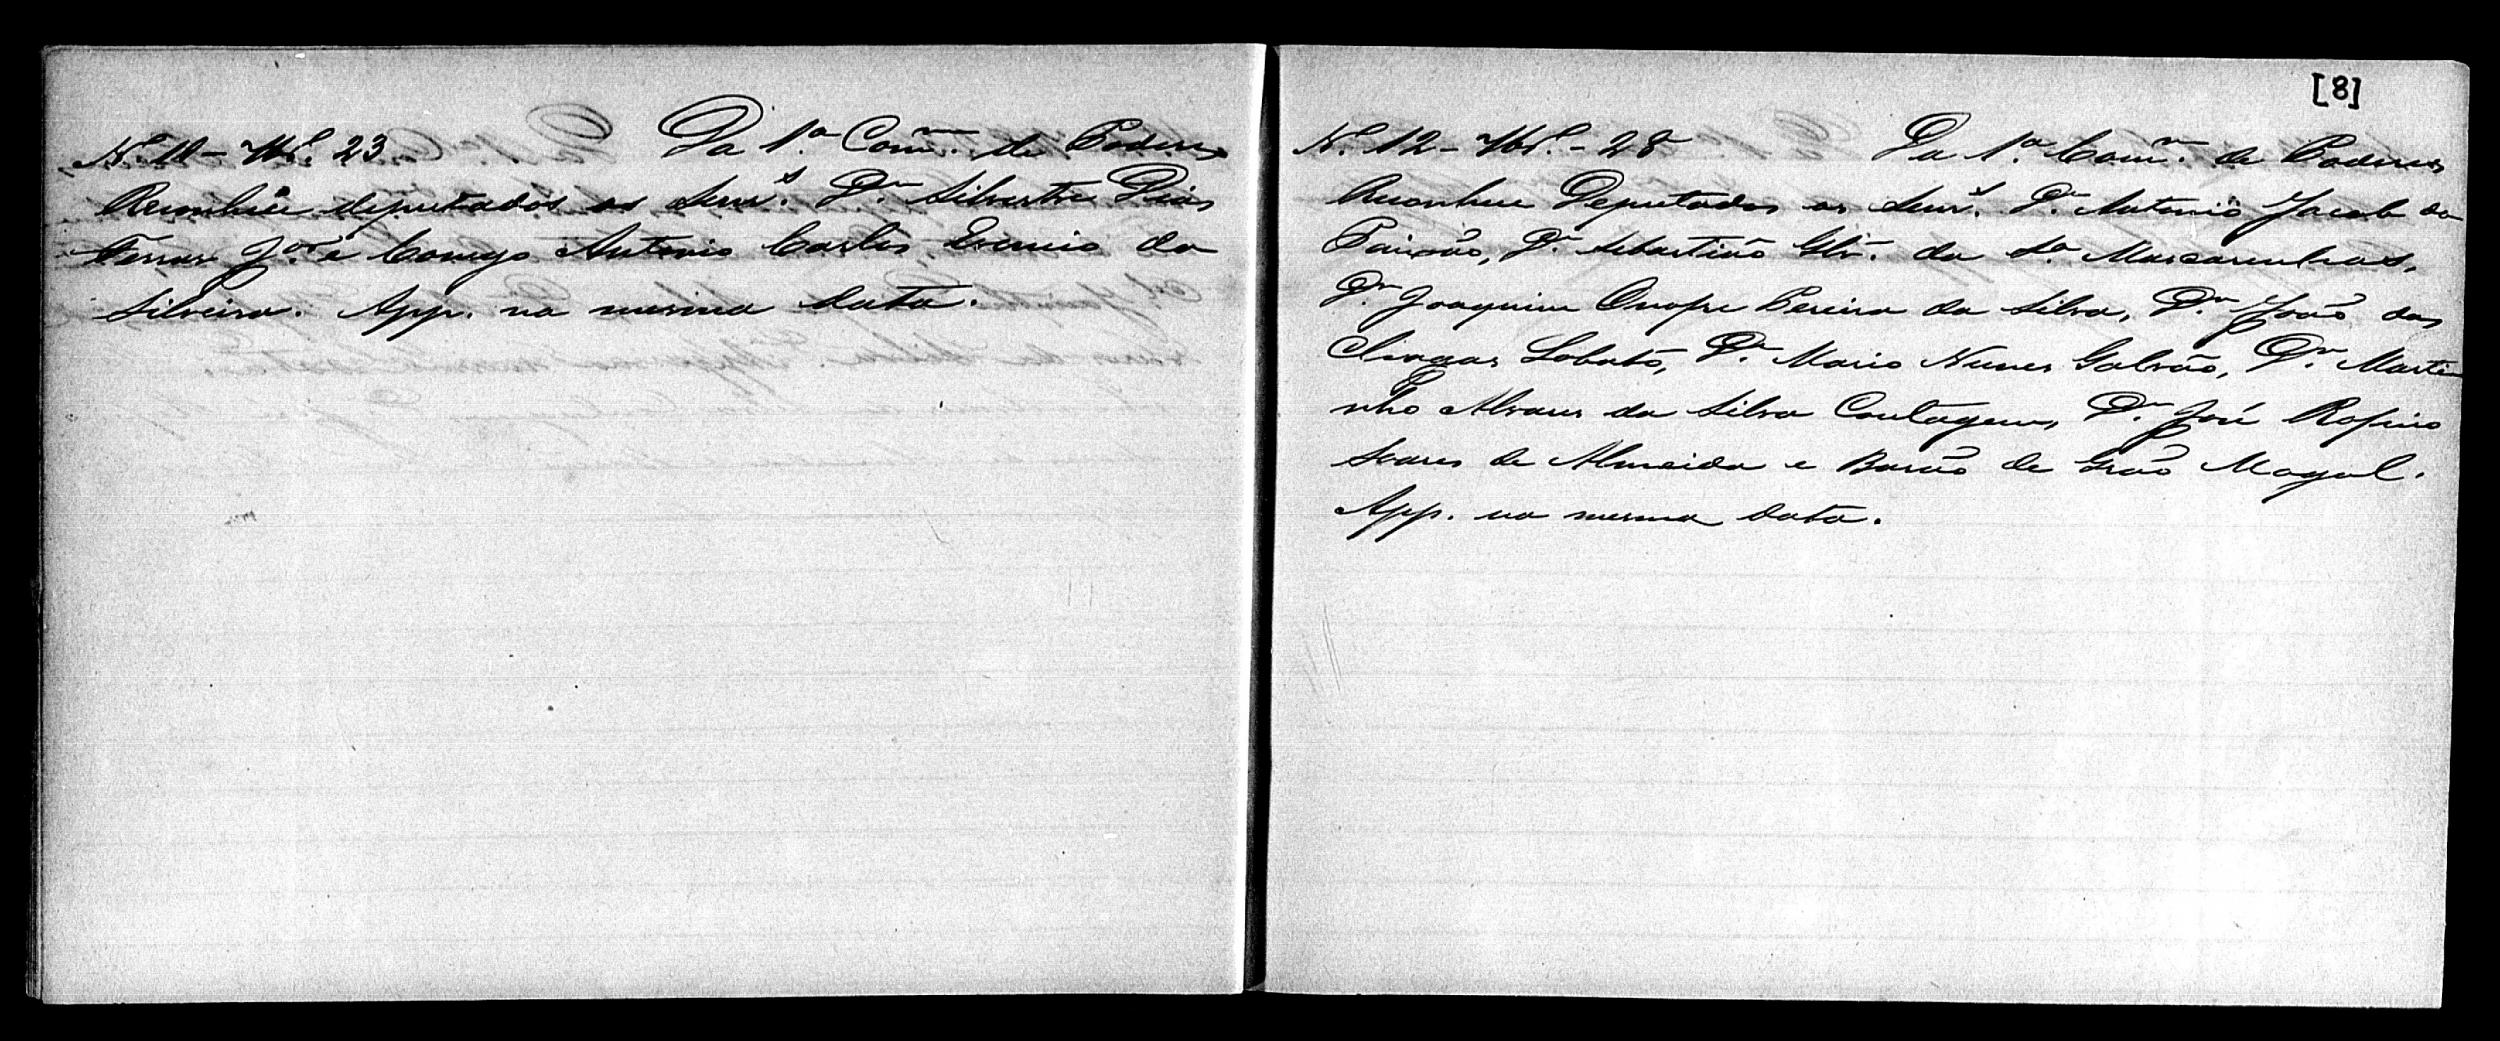 N. 11 - 7br.º 23 Da 1.ª Com.m de Poderes
Reconhece deputados os Senr.s D.r Silvestre Dias
Ferraz J.or e Conego Antonio Carlos da
Silveira. App. na mesma data.
[8]
N. 12 - 7br.º - 28 Da 1.ª Com.m de Poderes
Reconhece Deputados os Senr.s D.r Antonio Jacob da
Paixão, D.r Sebastião da S.a Mascarenhas,
D.r Joaquim Onofre Pereira da Silva, D.r João das
Chagas Lobato, D.r Mario Nunes Galvão, D.r Marti-
nho Alvares da Silva Contagem, D.r José Rofino
Soares de Almeida e Barão de Grão Mogol.
App. na mesma data.